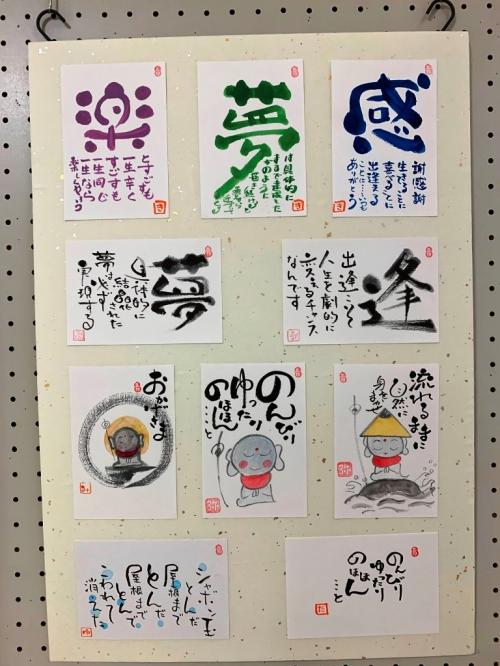 楽
とすごすも
一生辛く
すごすも
一生同じ
一生なら
楽しんじゃおう
夢
は具体的に
感
謝感謝
生きてること
喜べること
出逢える
ことに…いつも
ありがとう
夢
具体的に
結晶化
された
夢は必ず
実現する
逢
出逢いこそ
人生を劇的に
変えるチャンス
なんです
おかげさま
のんびり
ゆったり
のほほん
…と
流れるままに
自然に
身をまかせ
シャボン玉
とんだ
屋根まで
とんだ
屋根まで
とんで
こわれて
消えた
のんびり
ゆったり
のほほん
…と